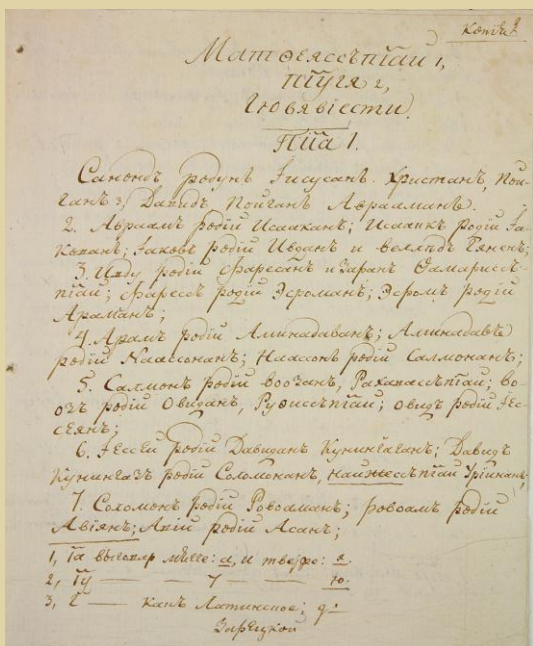 Копія
Матѳеяссѣпіяй 1,
пюгя 2,
гювявіести.
Піа 1.
родунъ Іисусанъ Христанъ, Пой-
ганъ 3, Давидъ Пойганъ Авраамань.
2. Авраамъ родій Исаакань; Исаакъ родій Іа-
кованъ; Іаковъ родій Иѵдань и
3. родій Фаресанъ и Зарань Ѳамариссѣ-
пяй; Фаресъ родій Эсромань; Эсромъ родій
Арамань;
4. Арамъ родій Аминадаванъ; Аминадавъ
родій Наассонань; Наассонъ родій Салмонань;
5. Салмонъ родій Воозань, Рахавассѣпяй; Во-
озъ родій Овидань, Руѳиссѣпяй; Овидъ родій Іес-
сеянъ;
6. Іессей родій Давидань Кунингаганъ; Давидъ
Кунингазъ родій Соломонань,
7. Соломонъ родій Ровоамань; Ровоамъ родій
Авіянъ; Авій родій Асань;
1, а, и твердо: я.
2, — — — ю.
3, — какъ Латинское:
Зарецкой